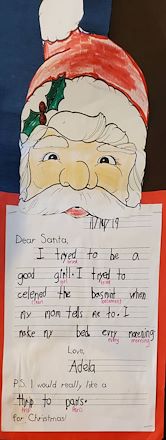 11/19/19
Dear Santa,
I tryed to be a
tried
good girll. I tryed to
girl tried
celened the basmet when
clean basement
my mom tells me to. I
make my bed evry morening
every morning
Love,
Adela
P.S. I would really like a
thrip to paris.
trip Paris
for Christmas!